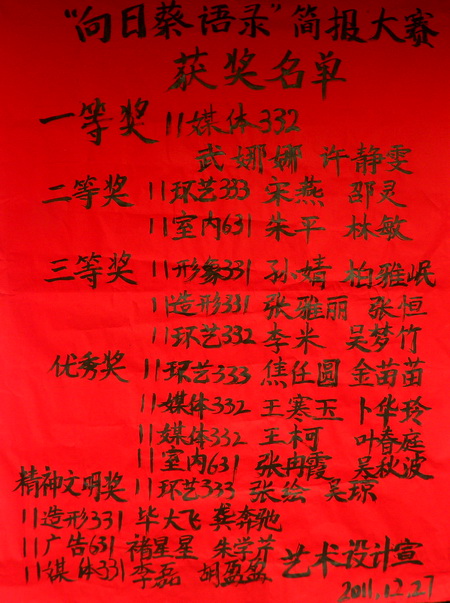 “向日葵语录”简报大赛
获奖名单
一等奖 11媒体332
武娜娜 许静雯
二等奖 11环艺333 宋燕 邵灵
11室内631 朱平 林敏
三等奖 11形象331 孙婧 柏雅岷
11造形331 张雅丽 张恒
11环艺332 李米 吴梦竹
优秀奖 11环艺333 焦任圆 金苗苗
11媒体332 王寒玉 卜华玲
11媒体332 王柯 叶春庭
11室内631 张冉霞 吴秋波
精神文明奖 11环艺333 张绘 吴琼
11造形331 毕大飞 龚奔驰
11广告631 褚星星 朱学芹
11媒体331 李磊 胡盈盈 艺术设计宣
2011.12.27